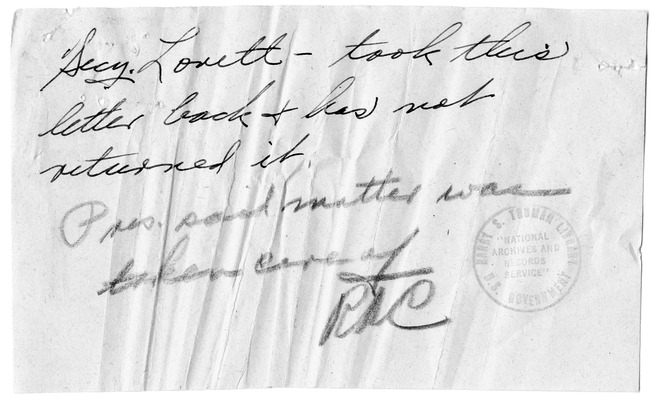 Secy. Lovett - took this
letter back & has not
returned it.
Pres. said matter was
taken care of
RAC
HARRY S. TRUMAN LIBRARY
"NATIONAL
ARCHIVES AND
RECORDS
SERVICE"
U.S. GOVERNMENT